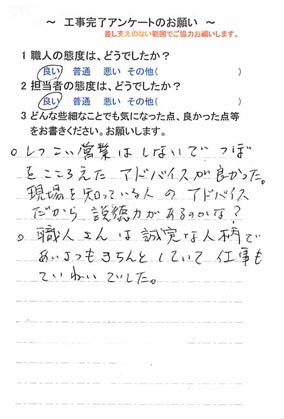 ～ 工事完了アンケートのお願い ～
差し支えのない範囲でご協力お願いします。
1 職人の態度は、どうでしたか？
良い 普通 悪い その他( )
2 担当者の態度は、どうでしたか？
良い 普通 悪い その他( )
3 どんな些細なことでも気になった点、良かった点等
をお書きください。お願いします。
○ しつこい営業はしないで つぼ
をこころえた アドバイスが良かった。
現場を知っている人の アドバイス
だから 説徳力があるのかな？
○ 職人さんは 誠実な人柄で
あいさつもきちんとしていて 仕事も
ていねいでした。